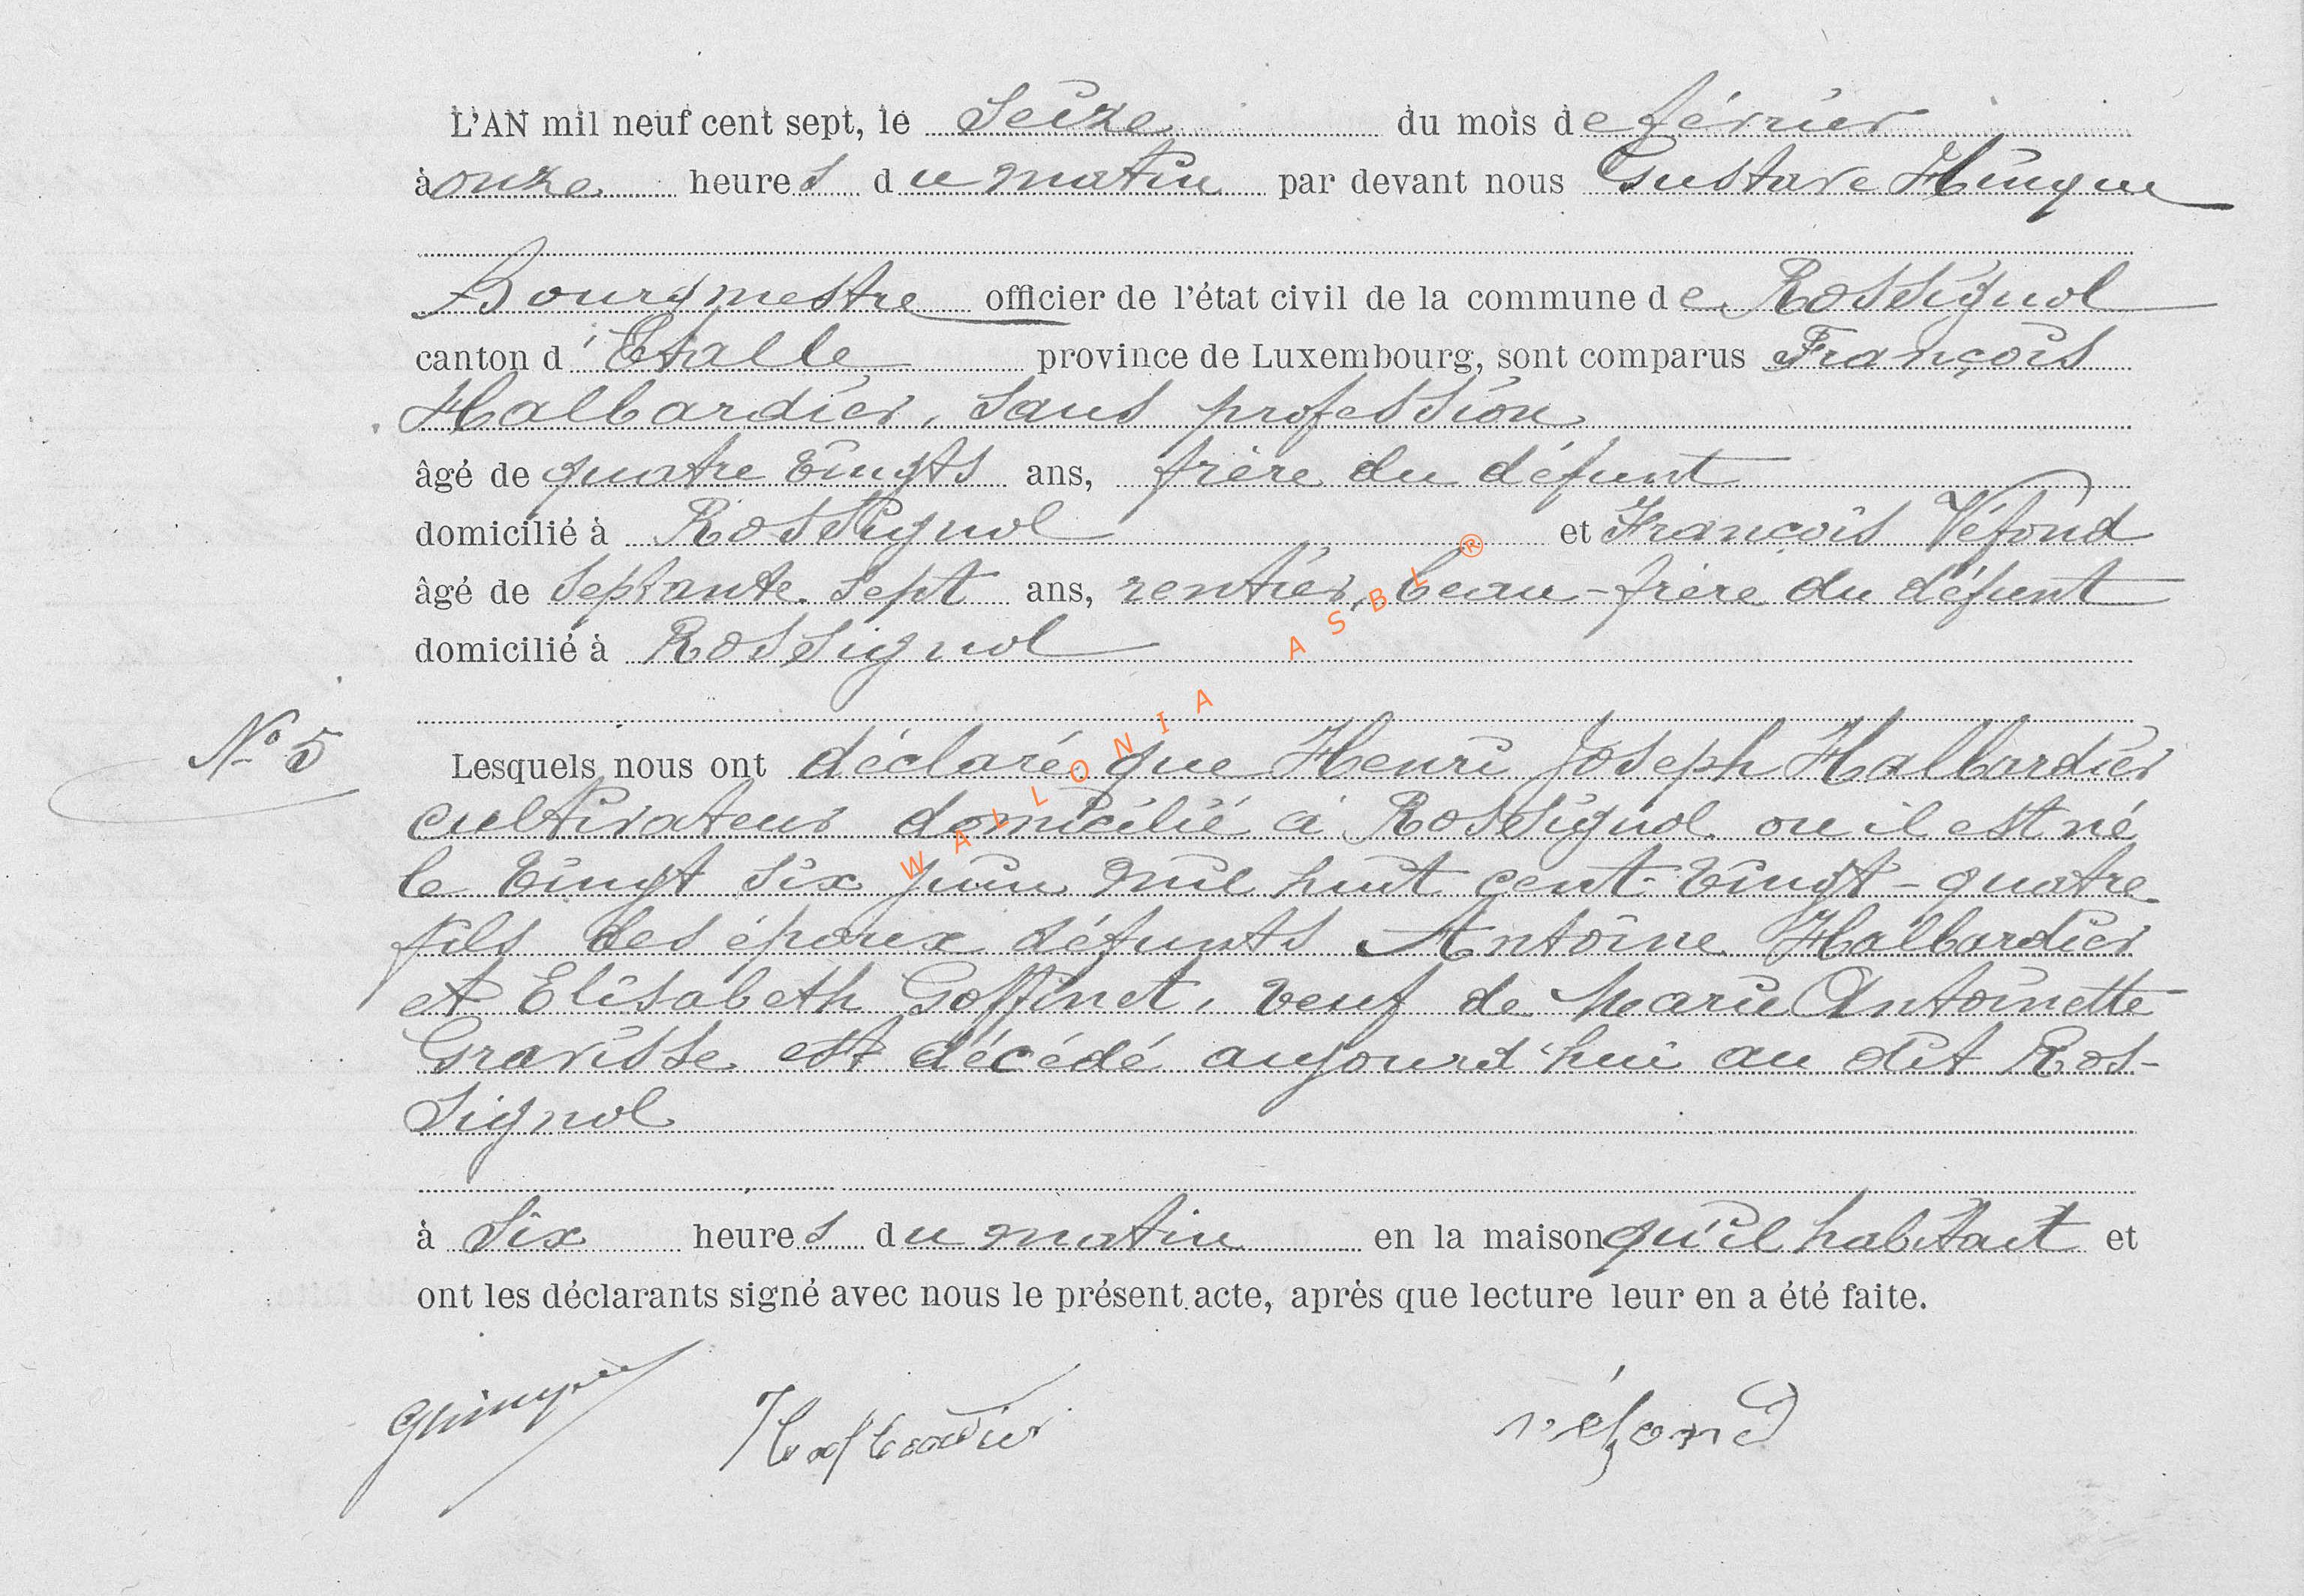 L'AN mil neuf cent sept, le Seize du mois de février
à onze heures du matin par devant nous Gustave Hinque
Bourgmestre officier de l'état civil de la commune de Rossignol
canton d'Etalle province de Luxembourg, sont comparus François
Halbardier, sans profession
âgé de quatre vingts ans, frère du défunt
domicilié à Rossignol et François Véfond
âgé de septante sept ans, rentier, beau-frère du défunt
domicilié à Rossignol
N° 5
Lesquels nous ont déclaré que Henri Joseph Halbardier
cultivateur domicilié à Rossignol ou il est né
le vingt six juin mil huit cent vingt-quatre
fils des époux défunts Antoine Halbardier
et Elisabeth Goffinet, veuf de Marie Antoinette
Gravisse est décédé aujourd'hui au dit Ros-
signol
à six heures du matin en la maison qu'il habitait et
ont les déclarants signé avec nous le présent acte, après que lecture leur en a été faite.
GHinque Halbardier véfond
WALLONIA ASBL ®